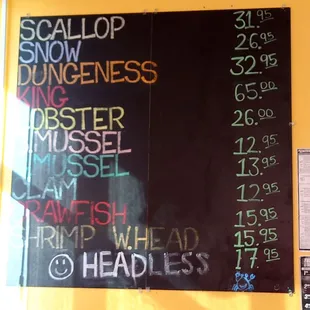 SCALLOP 31.95
SNOW 26.95
DUNGENESS 32.95
KING 65.00
LOBSTER 26.00
.MUSSEL 12.95
.MUSSEL 13.95
CLAM 12.95
CRAWFISH 15.95
SHRIMP W.HEAD 15.95
HEADLESS 17.95